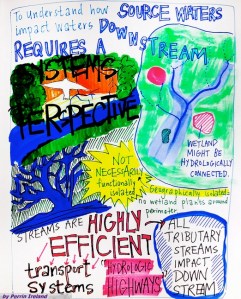 To Understand how
SOURCE WATERS
impact waters
DOWNSTREAM
REQUIRES A
SYSTEMS
PERSPECTIVE
WETLAND
MIGHT BE
HYDROLOGICALLY
CONNECTED.
NOT
NECESSARILY
Functionally
isolated
Geographically isolated:
no wetland plants around
perimeter
STREAMS ARE
HIGHLY
EFFICIENT
transport
Systems
HYDROLOGIC
HIGHWAYS
ALL
TRIBUTARY
STREAMS
IMPACT
DOWN
STREAM
by Perrin Ireland